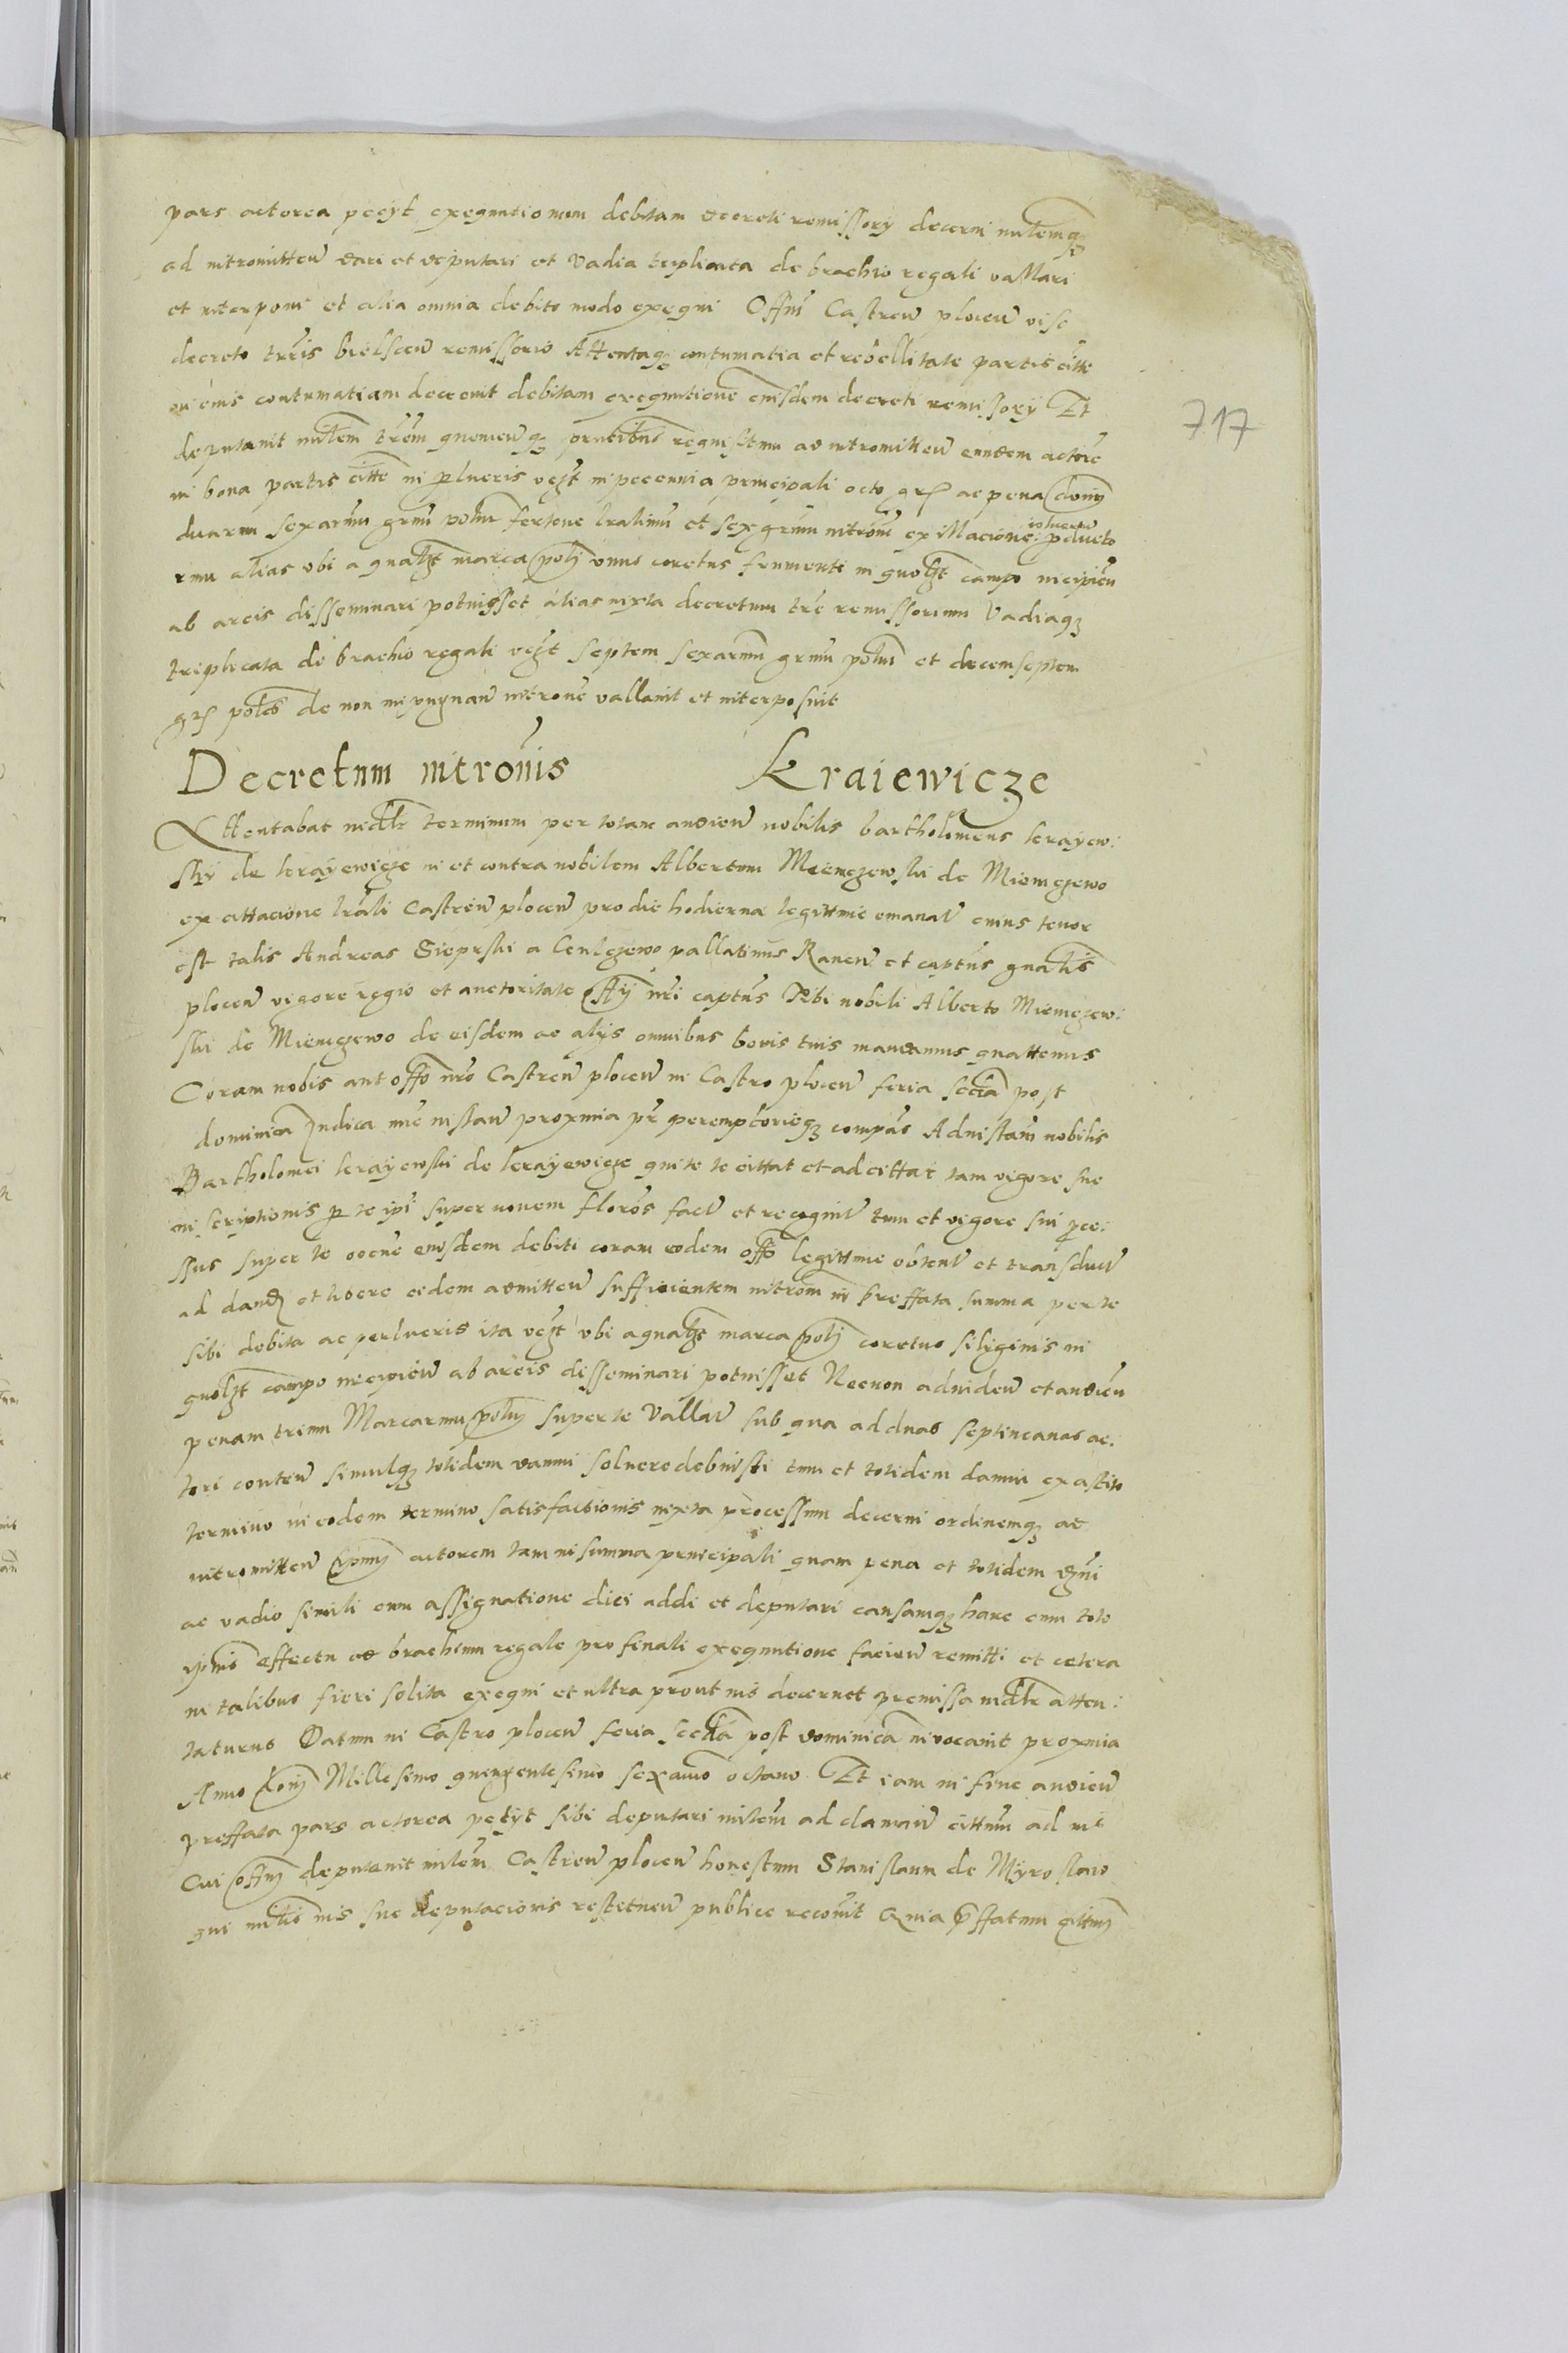 pars actorea petyt exequutionem debitam decreti remissory decerni mitemqꝫ
ad intromitten dari et deputari et vadia triplicata de brachio regali vallari
et interponi et alia omnia debito modo exequi Offm Castren plocen viso
decreto trris bielscen remissorio Attentaqꝫ contumatia et rebellitate partis citte
in eius contumatiam decrevit debitam exequutione eiusdem decreti remissory Et
deputavit mitem trrem quemcunqꝫ prntibus requisitum ad intromitten eundem actore
in bona partis citte in perlucris vezt in pecunia principali octo grs ac pena domj
duarum sexarum grum polm fertone tralium et sex grum introm ex
rum alias ubi a qualzt marca polj unus coretus frumenti in quolzt campo incipien
ab areis disseminari potuisset alias iuxta decretum tre remissorium vadiaqꝫ
triplicata de brachio regali vezt septem sexarum grum polm et decemseptem
grs poles de non impugnan introne vallavit et interposuit
Decretum intronis Kraiewicze
Attentabat indlr terminum per totam audien nobilis bartholomeus krayew:
sky de krayewicze in et contra nobilem Albertum Miemczewski de Miemczewo
ex cittacione trali Castren plocen pro die hodierna legittime emanat cuius tenor
est talis Andreas Sieprski a Gulczewo pallatinus Raven et captus gnalis
plocen vigore regio et auctoritate offy nri captus Tibi nobili Alberto Miemczew:
ski de Miemczewo de eisdem ac alys omnibus bonis tuis mandamus quattenus
Coram nobis aut offo nro Castren plocen in Castro plocen feria scda post
dominica Judica nuc instan proxima pr perempctorieqꝫ compas Ad instam nobilis
Bartholomei krayewski de krayewicze qui te te cittat et ad cittat tam vigore sue
inscriptionis p te ipi super novem floros fact et recognit tum et vigore sui pce:
ssus super te occne eiusdem debiti coram eodem offo legittime obtent et transduct
ad dand et libere eidem admitten sufficientem introm in preffata summa per te
sibi debita ac perlucris ita vezt ubi a qualzt marca polj coretus siliginis in
quolzt campo incipien ab areis disseminari potuisset Necnon ad viden et audien
penam trium Marcarum polm super te vallat sub qua ad duas septimanas ac:
tori conten simulqꝫ totidem damni solvere debuisti tum et totidem damni ex astito
termino in eodem termino satisfactionis iuxta processum decerni ordinemqꝫ ac
intromitten ipmj actorem tam in summa principali quam pena et totidem
ac vadio simili cum assignatione diei addi et deputari causamqꝫ hanc cum toto
ipius effectu ad brachium regale pro finali exequutione facien remitti et cetera
in talibus fieri solita exequi et ultra prout ius decernet premissa indlr atten:
taturus Datum in Castro plocen feria scda post dominica invocavit proxima
Anno domj Millesimo quingentesimo sexamo octavo Et iam in fine audien
preffata pars actorea petyt sibi deputari mitem ad claman cittum ad ius
Cui offm deputavit mitem Castren plocen honestum Stanislaum de Myroslaw
qui mitis ius sue deputacionis restetneu publice recovit Quia pffatum cittum